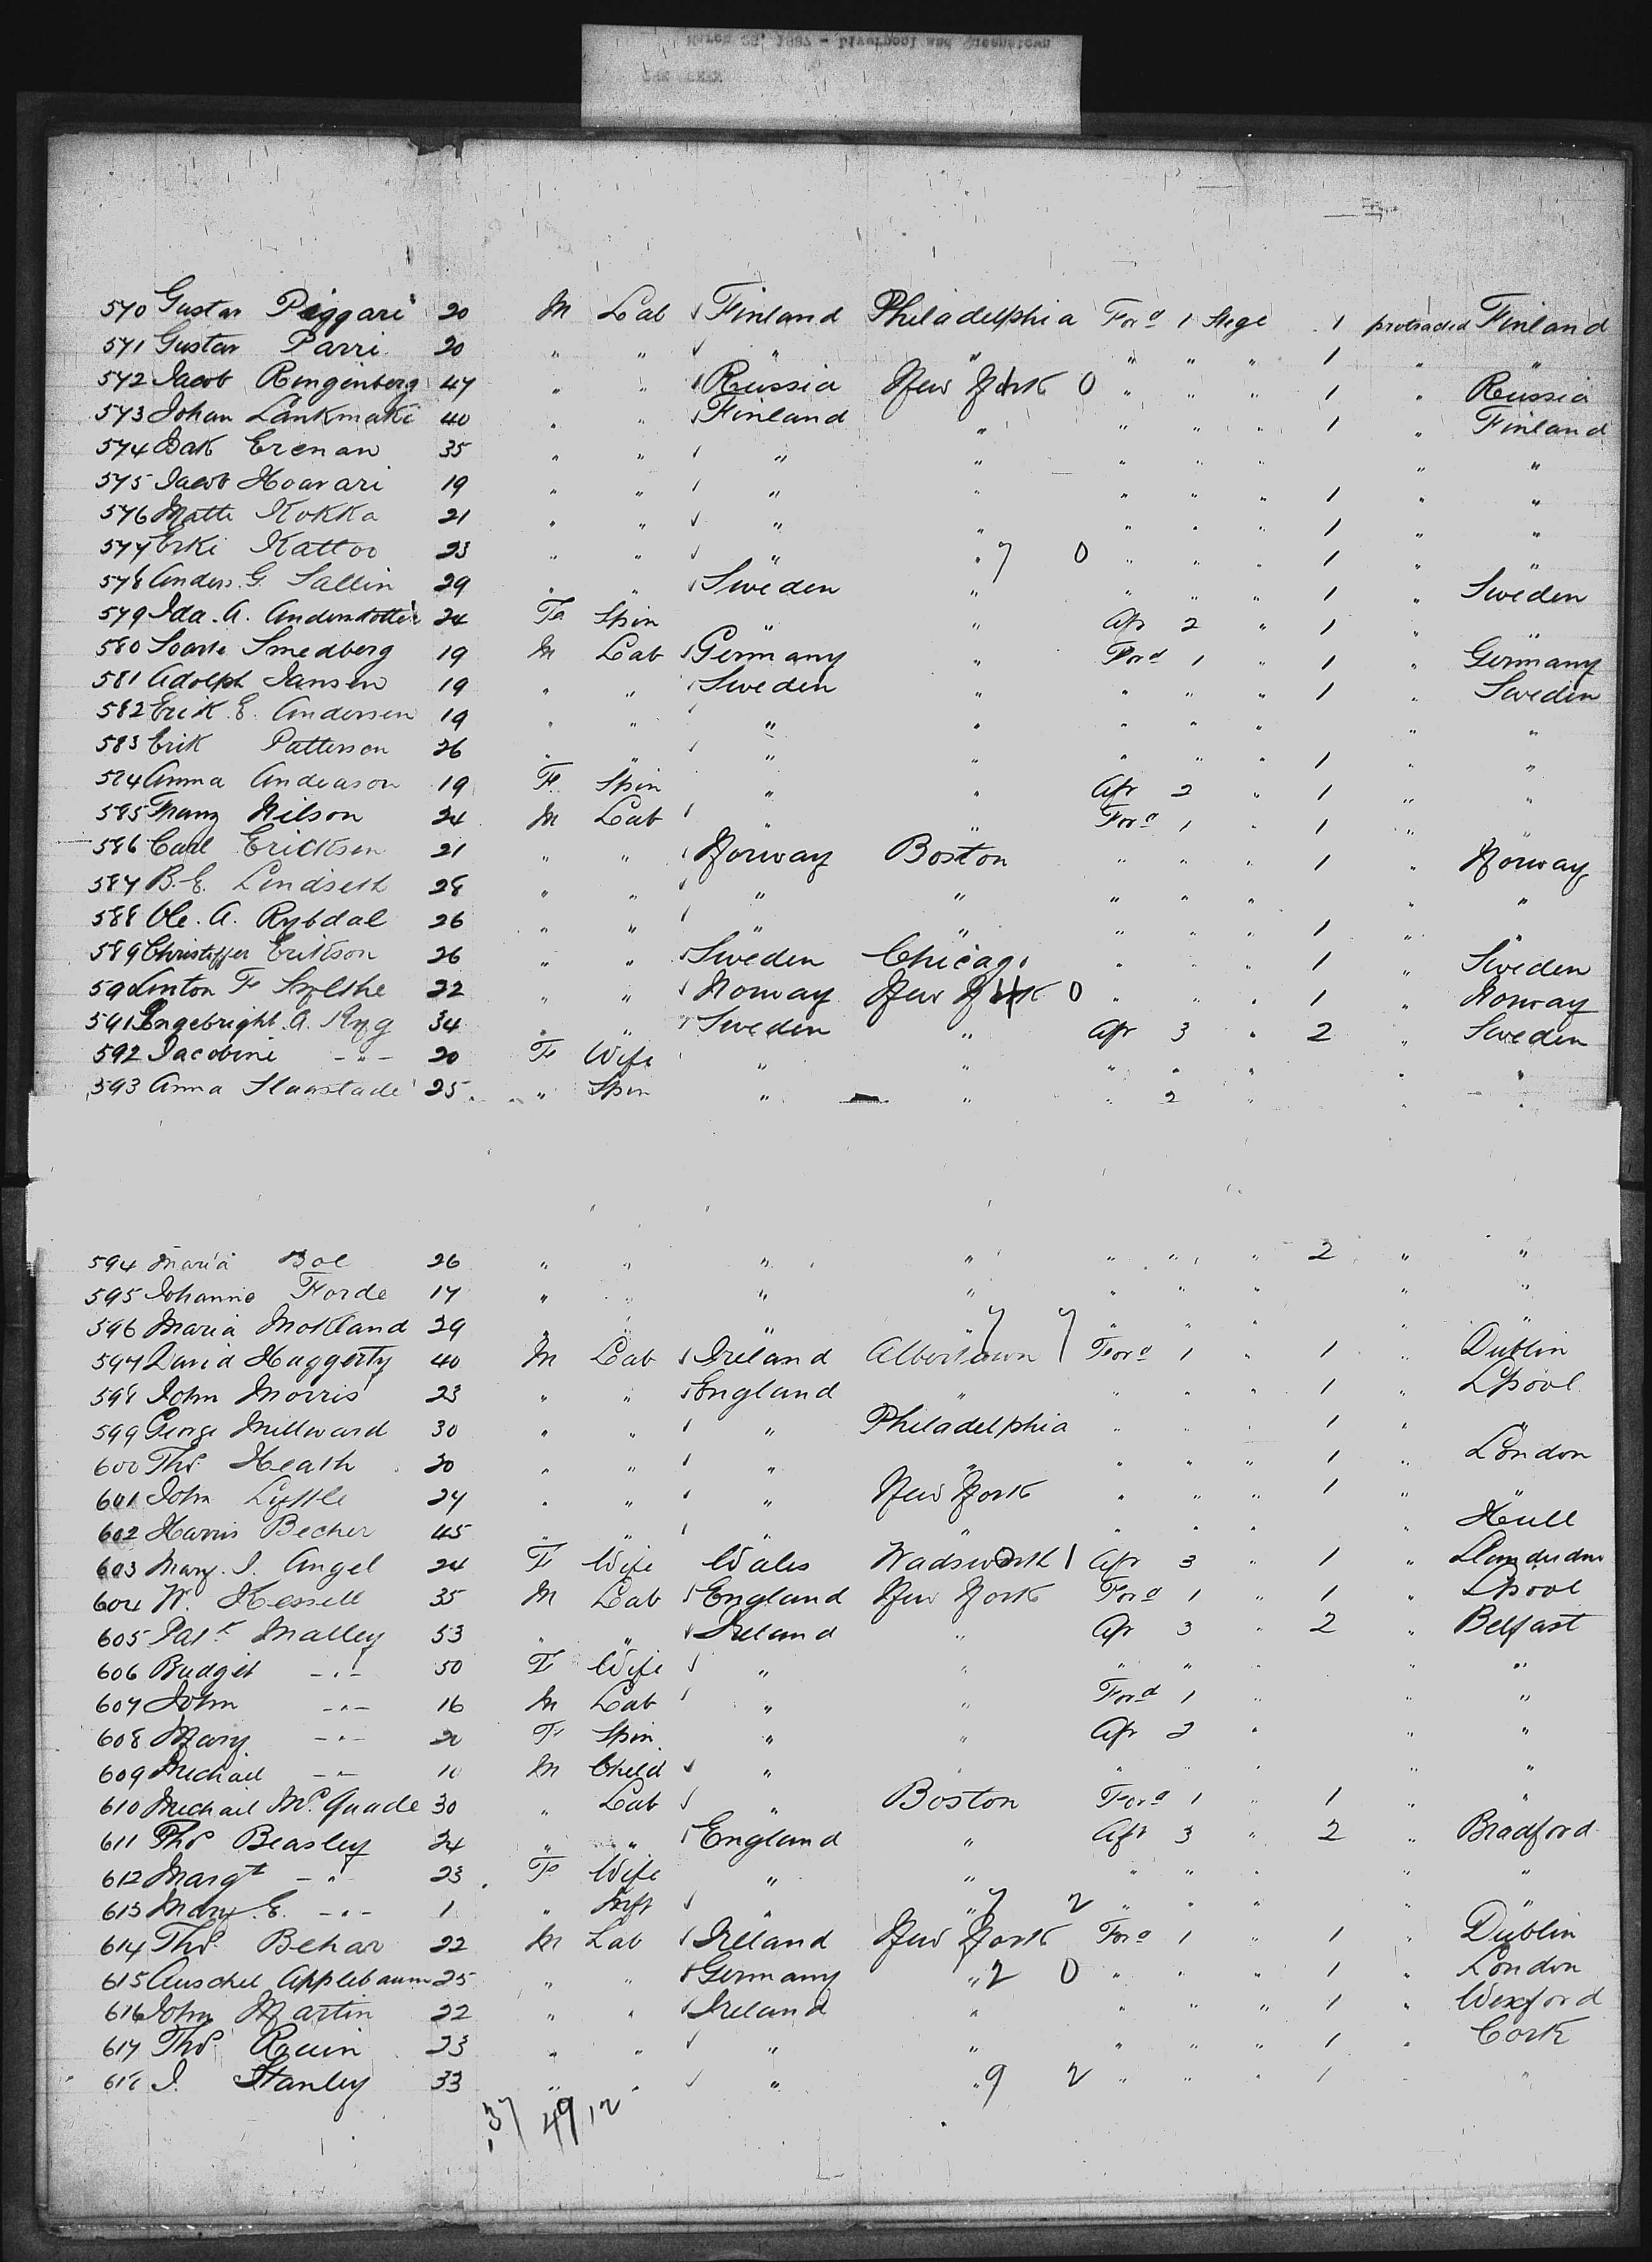 March 28, 1887 - Liverpool and Queenstown
570 Gustav Piggari 20 M Lab Finland Philadelphia Ford 1 Stege 1 protracted Finland
571 Gustav Parri 20 " " " " " " " 1 " "
572 Jacob Ringenberg 47 " " Russia New York 0 " " " 1 " Russia
573 Johan Lankmaki 40 " " Finland " " " " 1 " Finland
574 Isak Erenan 35 " " " " " " " " "
575 Jacob Hoavari 19 " " " " " " " 1 " "
576 Matti Kokka 21 " " " " " " " 1 " "
577 Erki Kattoo 23 " " " " 7 0 " " " 1 " "
578 Anders. G. Sallin 29 " " Sweden " " " " 1 " Sweden
579 Ida. A. Andersdotter 24 Fe Spin " " Aft 2 " 1 " "
580 Smedberg 19 M Lab Germany " Ford 1 " 1 " Germany
581 Adolph Jansen 19 " " Sweden " " " " 1 " Sweden
582 Erik. E. Andersen 19 " " " " " " " " "
583 Erik Patterson 26 " " " " " " " 1 " "
584 Anna Andeason 19 F Spin " " Aft 2 " 1 " "
585 Franz Nilson 24 M Lab " " Ford 1 " 1 " "
586 Carl Ericksen 21 " " Norway Boston " " " 1 " Norway
587 B. E. Lindseth 28 " " " " " " " " "
588 Ole. A. Rybdal 26 " " " " " " " 1 " "
589 Christoffer Erikson 26 " " Sweden Chicago " " " 1 " Sweden
590 Anton F 22 " " Norway New York 0 " " " 1 " Norway
591 Engebright. A. Ryg 34 " " Sweden " Aft 3 " 2 " Sweden
592 Jacobine -"- 20 F Wife " " " " " " "
593 Anna Slaastade 25 " Spin " " " 2 " " "
594 Maria Boe 26 " " " " " " " 2 " "
595 Johanne Forde 17 " " " " " " " " "
596 Maria Mokland 29 " " " " 7 7 " " " " "
597 David Haggerty 40 M Lab Ireland Albertown 1 Ford 1 " 1 " Dublin
598 John Morris 23 " " England " " " " 1 " Lpool
599 George Millward 30 " " " Philadelphia " " " 1 " "
600 Thos Heath 30 " " " " " " " 1 " London
601 John Lyttle 24 " " " New York " " " 1 " "
602 Harris Becher 45 " " " " " " " " Hull
603 Mary. J. Angel 24 F Wife Wales Wadsworth 1 Aft 3 " 1 "
604 W. Kessell 35 M Lab England New York Ford 1 " 1 " Lpool
605 Patk Malley 53 " " Ireland " Aft 3 " 2 " Belfast
606 Bridget -"- 50 F Wife " " " " " " "
607 John -"- 16 M Lab " " Ford 1 " " "
608 Mary -"- 20 F Spin " " Aft 2 " " "
609 Michael -"- 10 M Child " " " " " " "
610 Michael McQuade 30 " Lab " Boston Ford 1 " 1 " "
611 Thos Beasley 24 " " England " Aft 3 " 2 " Bradford
612 Margt -"- 23 F Wife " " " " " " "
613 Mary. E. -"- 1 " Inft " " 7 2 " " " " "
614 Thos Behan 22 M Lab Ireland New York Ford 1 " 1 " Dublin
615 Applebaum 25 " " Germany " 2 0 " " " 1 " London
616 John Martin 22 " " Ireland " " " " 1 " Wexford
617 Thos 23 " " " " " " " 1 " Cork
618 J. Stanley 33 " " " " 9 2 " " " 1 - "
37 49 12